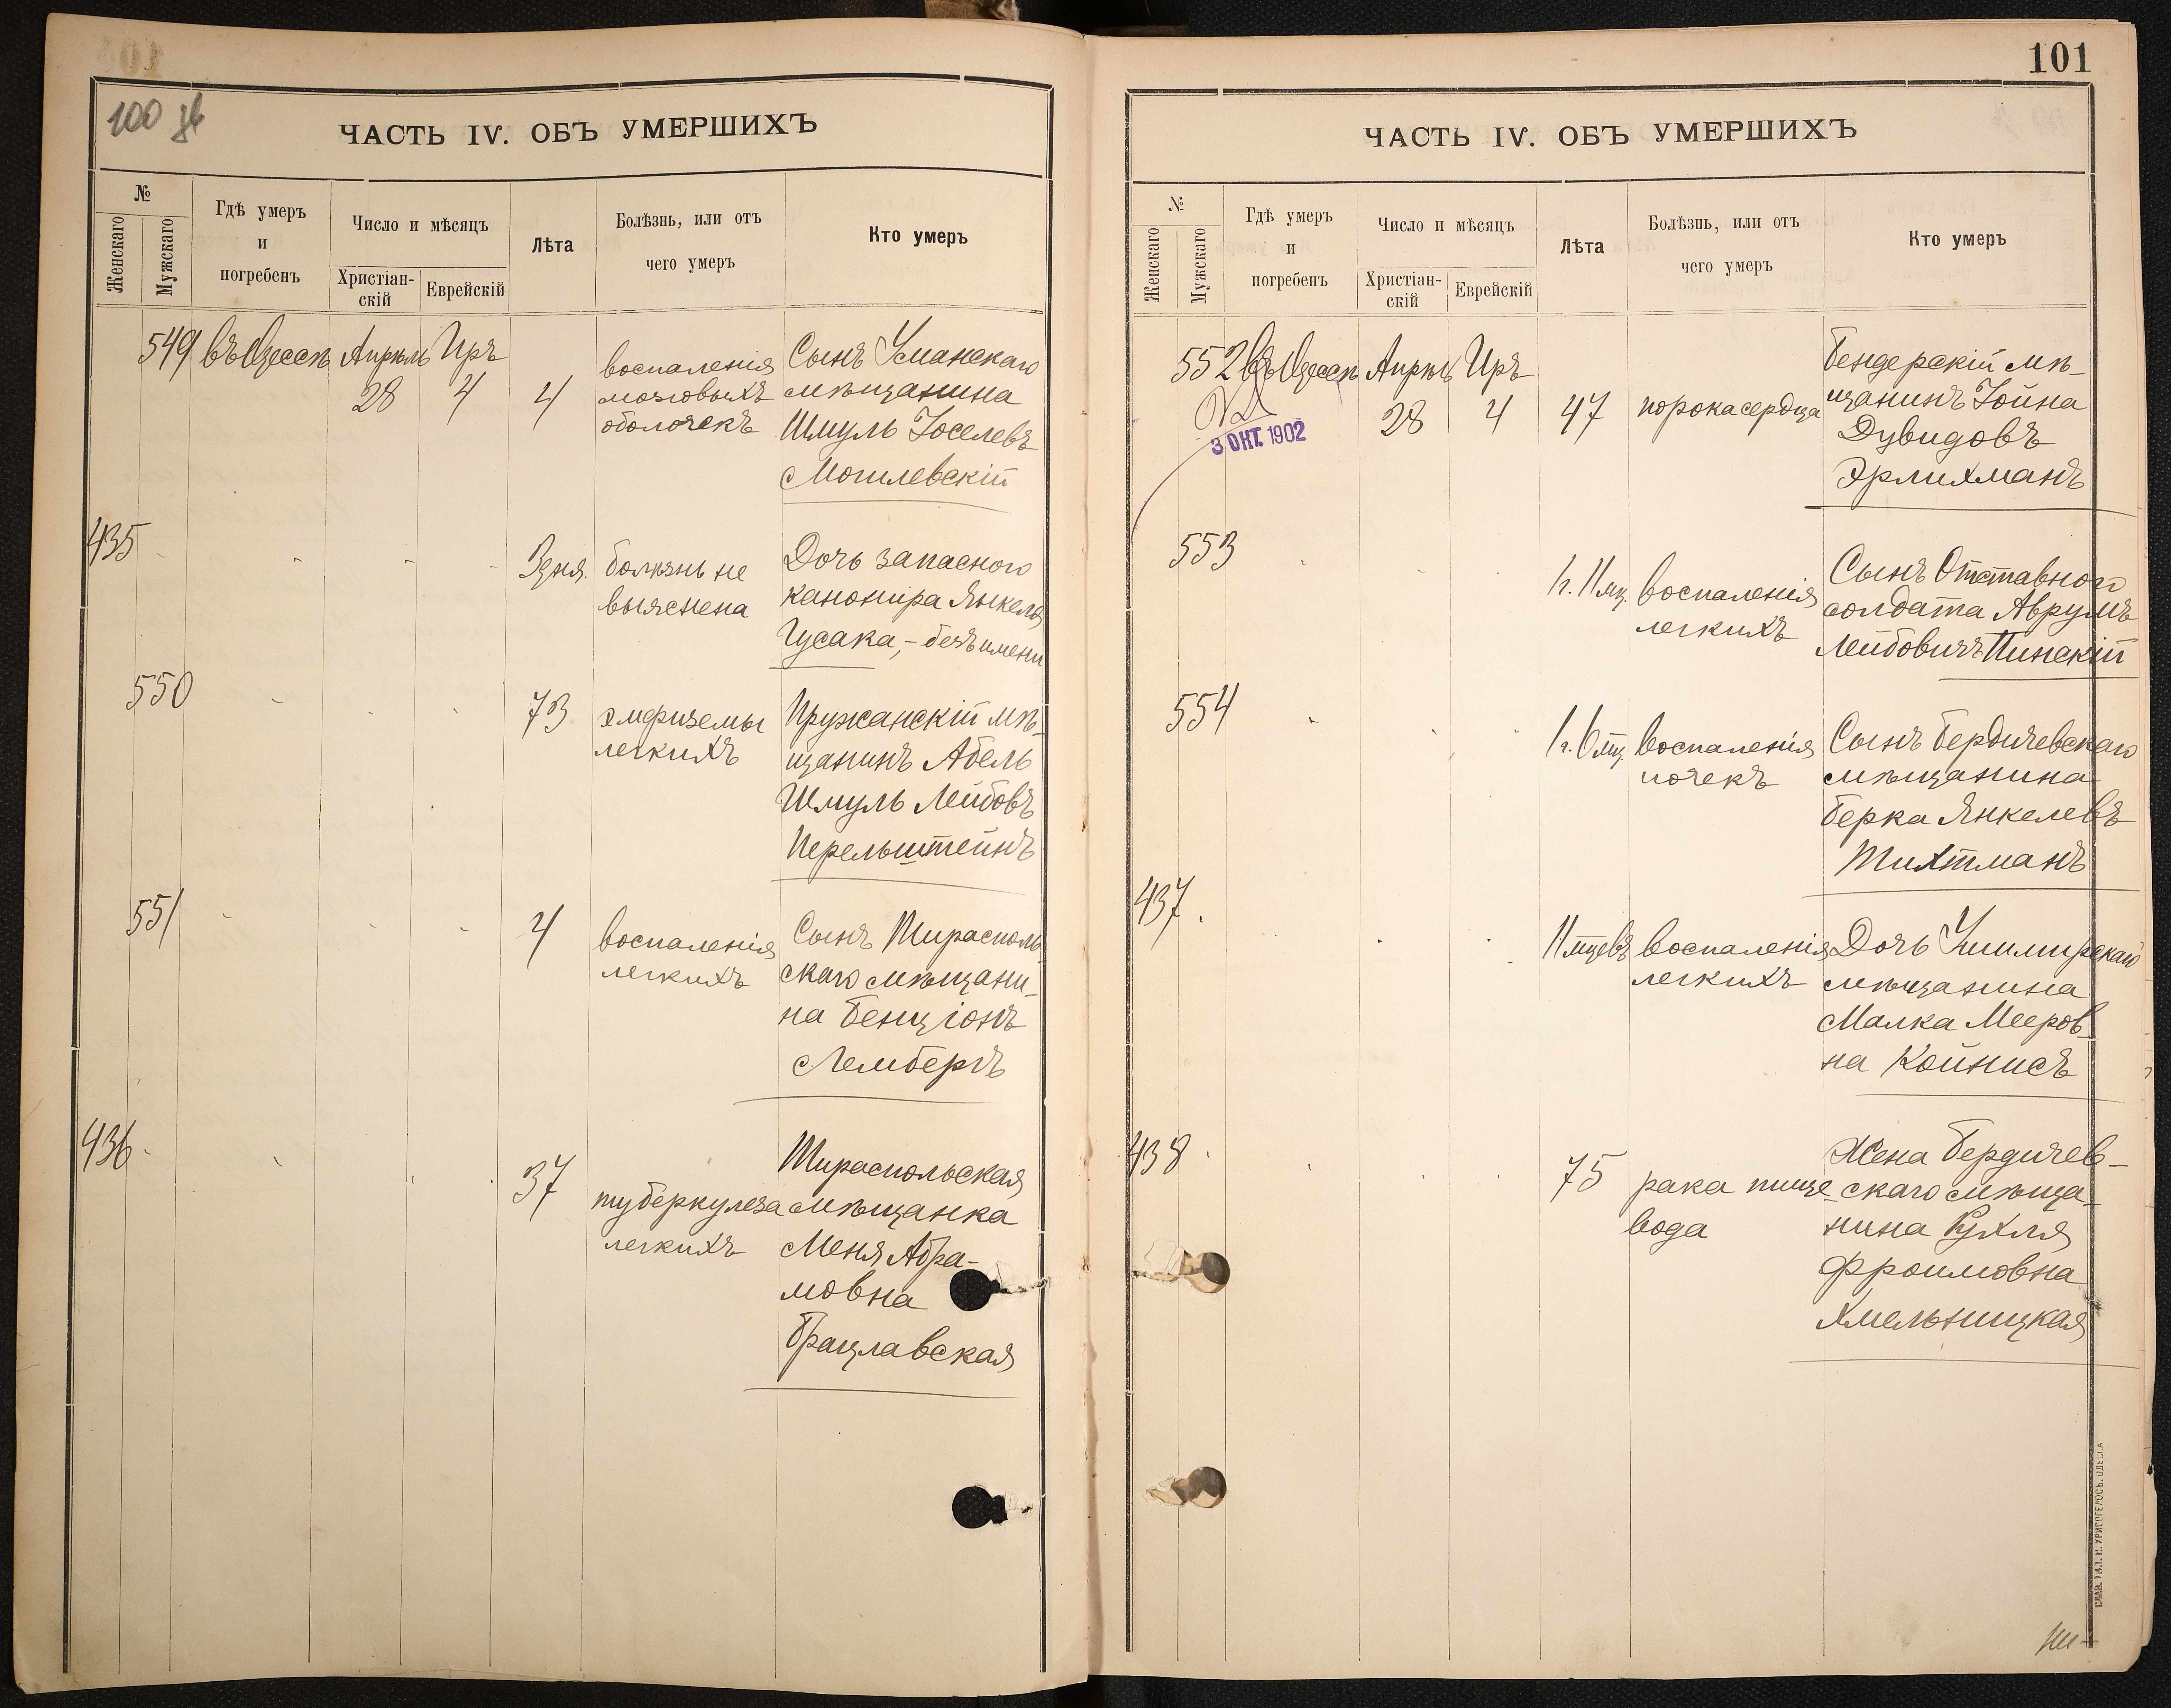 100 зв
ЧАСТЬ IV. ОБЪ УМЕРШИХЪ
№
Женскаго
Мужскаго
Гдѣ умеръ
и
погребенъ
Число и мѣсяцъ
Христіан-
скій
Еврейскій
Лѣта
Болѣзнь, или отъ
чего умеръ
Кто умеръ
549 въ Одессѣ Апрѣль Иръ
28 4 4
воспаленія
мозговыхъ
оболочекъ
Сынъ Уманскаго
мѣщанина
Шмуль Іоселевъ
Могилевскій
435
3 дня.
болѣзнь не
выяснена
Дочь запасного
канонира Янкеля
Гусака, - безъ имени
550
73
эмфиземы
легкихъ
Пружанскій мѣ-
щанинъ Абель
Шмуль Лейбовъ
Перельштейнъ
551
4
воспаленія
легкихъ
Сынъ Тирасполь-
скаго мѣщани-
на Бенціонъ
Лембергъ
436
37
туберкулеза
легкихъ
Тираспольская
мѣщанка
Меня Абра-
мовна
Брацлавская
101
ЧАСТЬ IV. ОБЪ УМЕРШИХЪ
№
Женскаго
Мужскаго
Гдѣ умеръ
и
погребенъ
Число и мѣсяцъ
Христіан-
скій
Еврейскій
Лѣта
Болѣзнь, или отъ
чего умеръ
Кто умеръ
552 Въ Одессѣ Апрѣль Иръ
28 4 47
3 ОКТ. 1902
порока сердца
Бендерскій мѣ-
щанинъ Іойна
Дувидовъ
Эрлихманъ
553
1 г. 11 мц.
воспаленія
легкихъ
Сынъ Отставного
солдата Аврумъ
Лейбовичъ Пинскій
554
1 г. 6 мц.
воспаленія
почекъ
Сынъ Бердичевскаго
мѣщанина
Берка Янкелевъ
Тихтманъ
437
11 мцевъ
воспаленія
легкихъ
Дочь
мѣщанина
Малка Мееров-
на Койнисъ
438
75
рака пище-
вода
Жена Бердичев-
скаго мѣща-
нина Рухля
Фроимовна
Хмельницкая